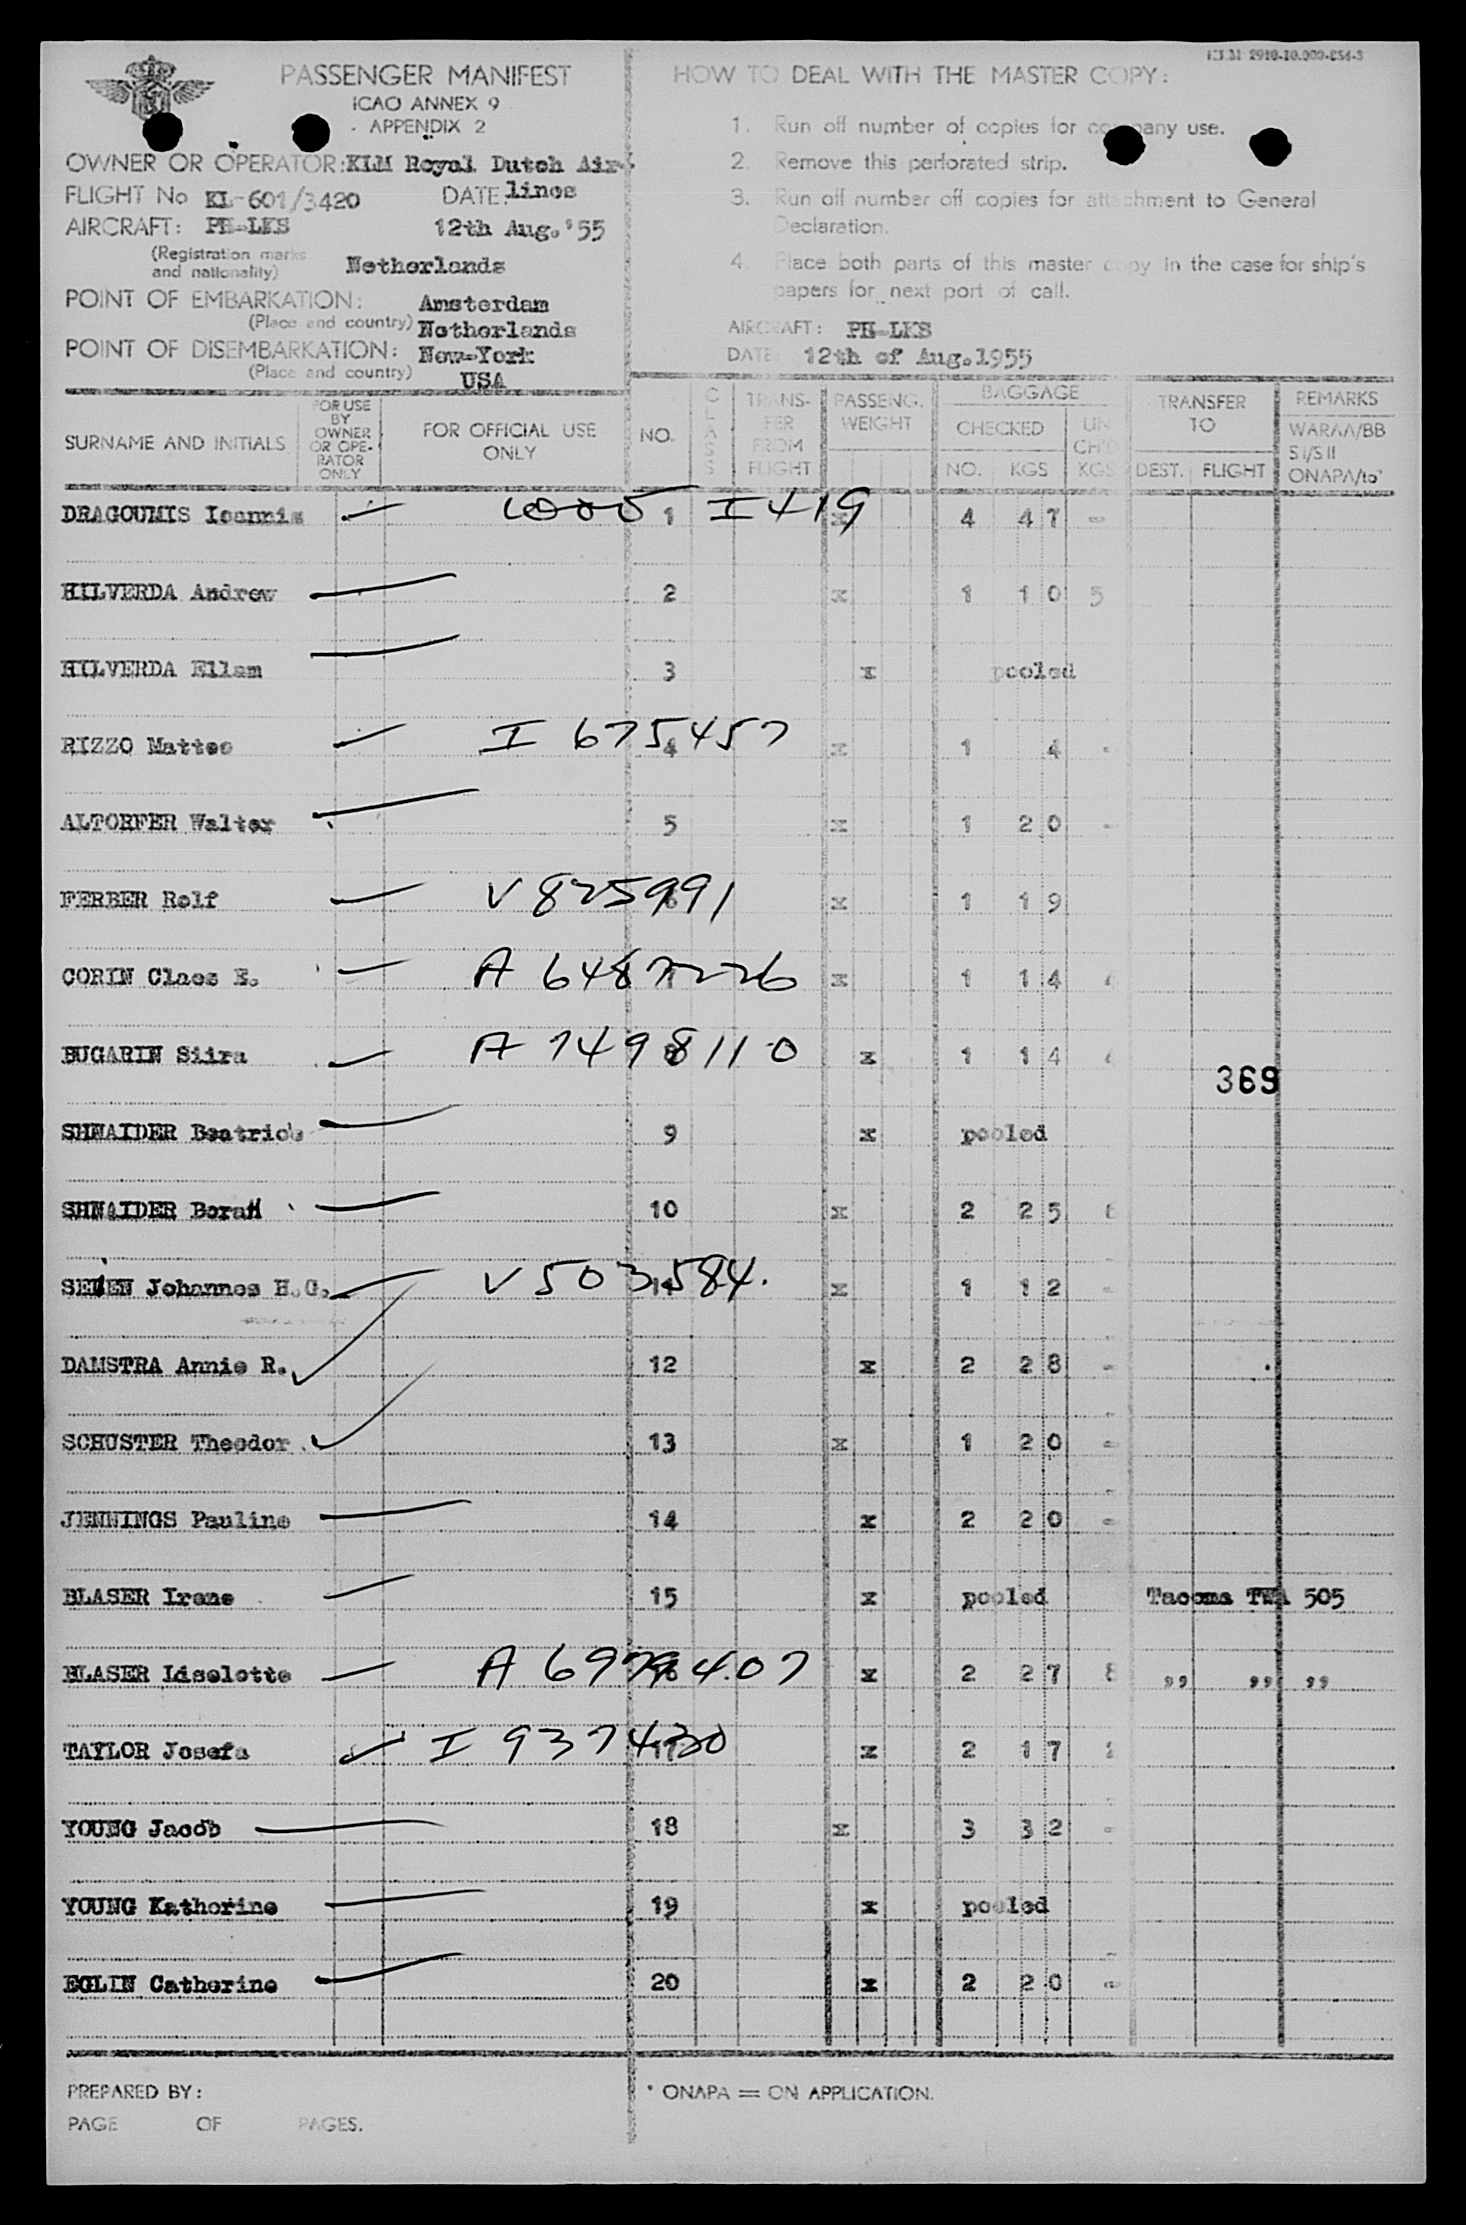 PASSENGER MANIFEST
ICAO ANNEX 9
APPENDIX 2
OWNER OR OPERATOR: KLM Royal Dutch Air-
lines
FLIGHT No KL-601/3420 DATE:
AIRCRAFT: PH-LKS 12th Aug.'55
(Registration marks
and nationality) Netherlands
POINT OF EMBARKATION: Amsterdam
(Place and country) Netherlands
POINT OF DISEMBARKATION: New-York
(Place and country) USA
HOW TO DEAL WITH THE MASTER COPY:
1. Run off number of copies for company use.
2. Remove this perforated strip.
3. Run off number off copies for attachment to General
Declaration.
4. Place both parts of this master copy in the case for ship's
papers for next port of call.
AIRCRAFT: PH-LKS
DATE 12th of Aug.1955
SURNAME AND INITIALS FOR USE BY OWNER OR OPE-RATOR ONLY FOR OFFICIAL USE ONLY NO. CLASS TRANS-FER FROM FLIGHT PASSENG. WEIGHT BAGGAGE CHECKED NO. KGS UN CH'D KGS TRANSFER TO DEST. FLIGHT REMARKS WARAA/BB SI/SII ONAPA/to*
DRAGOUMIS Ioannis 1 I 419 x 4 47 -
HILVERDA Andrew 2 x 1 10 5
HILVERDA Ellem 3 x pooled
RIZZO Matteo I 675457 4 x 1 4 -
ALTORFER Walter 5 x 1 20 -
FERBER Rolf V 825991 6 x 1 19
CORIN Claes E. A 6487226 7 x 1 14
BUGARIN Siira A 7498110 8 x 1 14
369
SHNAIDER Beatrice 9 x pooled
SHNAIDER Borah 10 x 2 25
SEIEN Johannes H.G. V 503584. 11 x 1 12 -
DAMSTRA Annie R. 12 x 2 28 -
SCHUSTER Theodor 13 x 1 20 -
JENNINGS Pauline 14 x 2 20 -
BLASER Irene 15 x pooled Tacoma TWA 505
BLASER Liselotte A 6979407 16 x 2 27 8 ,, ,, ,,
TAYLOR Josefa I 937430 17 x 2 17
YOUNG Jacob 18 x 3 32 -
YOUNG Katherine 19 x pooled
EGLIN Catherine 20 x 2 20 -
PREPARED BY:
PAGE OF PAGES.
* ONAPA = ON APPLICATION.